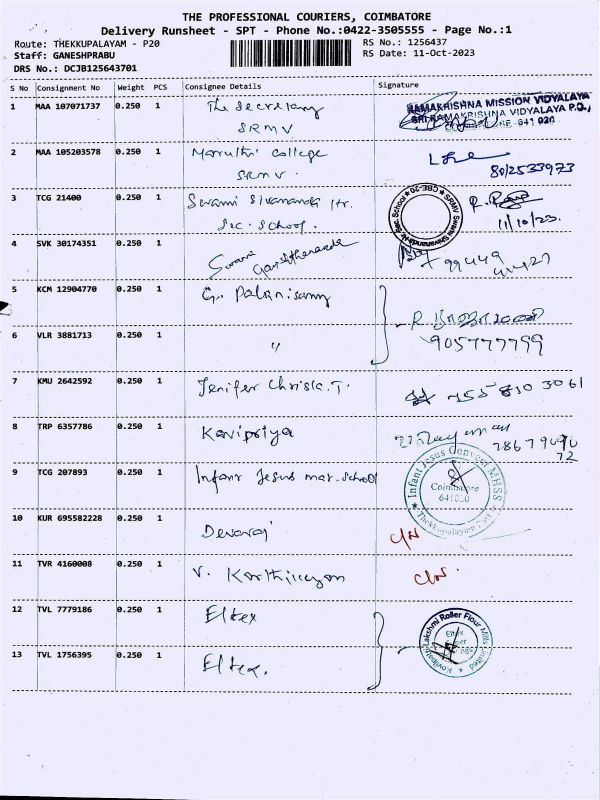 THE PROFESSIONAL COURIERS, COIMBATORE
Delivery Runsheet - SPT - Phone No.:0422-3505555 - Page No.:1
Route: THEKKUPALAYAM - P20
RS No.: 1256437
Staff: GANESHPRABU
RS Date: 11-Oct-2023
DRS No.: DCJB125643701
S No Consignment No Weight PCS Consignee Details Signature
1 MAA 107071737 0.250 1 The Secretary
SRMV
RAMAKRISHNA MISSION VIDYALAYA
SRI RAMAKRISHNA VIDYALAYA P.O.,
COIMBATORE-641 020
2 MAA 105203578 0.250 1 Maruthi College
SRMV.
8012533973
3 TCG 21400 0.250 1 Swami Sivananda Hr.
Sec. School.
11/10/23.
4 SVK 30174351 0.250 1 Swami
5 KCM 12904770 0.250 1 G. Palanisamy
6 VLR 3881713 0.250 1 "
905777799
7 KMU 2642592 0.250 1 Jenifer Christa.T.
755 810 3061
8 TRP 6357786 0.250 1 Kavipriya
9 TCG 207893 0.250 1 Infant Jesus mat. School
Infant Jesus Convent MHSS
Coimbatore
641020
Thekkupalayam
10 KUR 695582228 0.250 1 Devaraj
C/N
11 TVR 4160008 0.250 1 V. Karthikeyan
C/N.
12 TVL 7779186 0.250 1 Eltex
13 TVL 1756395 0.250 1 Eltex.
Kovilpatti Lakshmi Roller Flour Mills Limited
Eltex